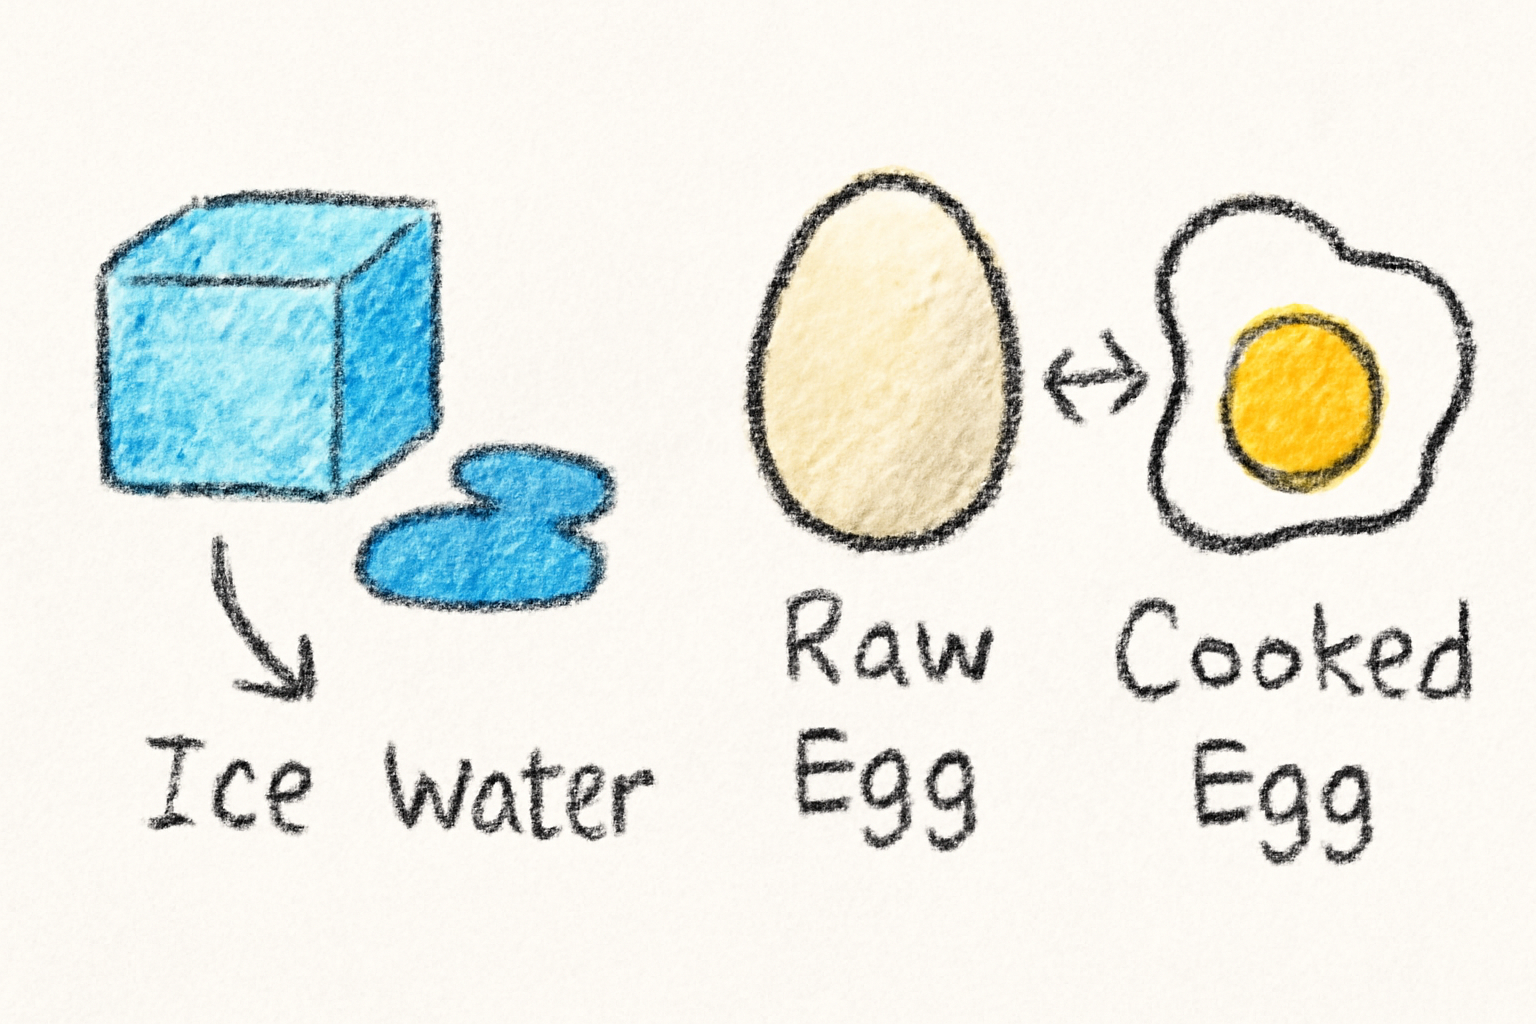 Ice Water
Raw
Egg
Cooked
Egg